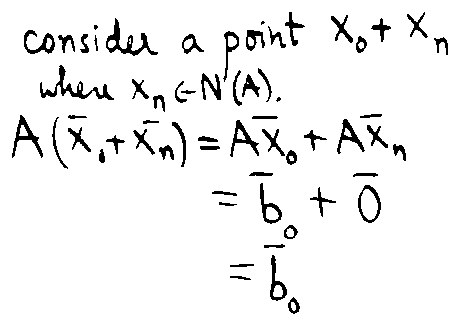 consider a point x₀ + xₙ
where xₙ ∈ N(A).
A(x̄₀ + x̄ₙ) = Ax̄₀ + Ax̄ₙ
= b̄₀ + 0̄
= b̄₀